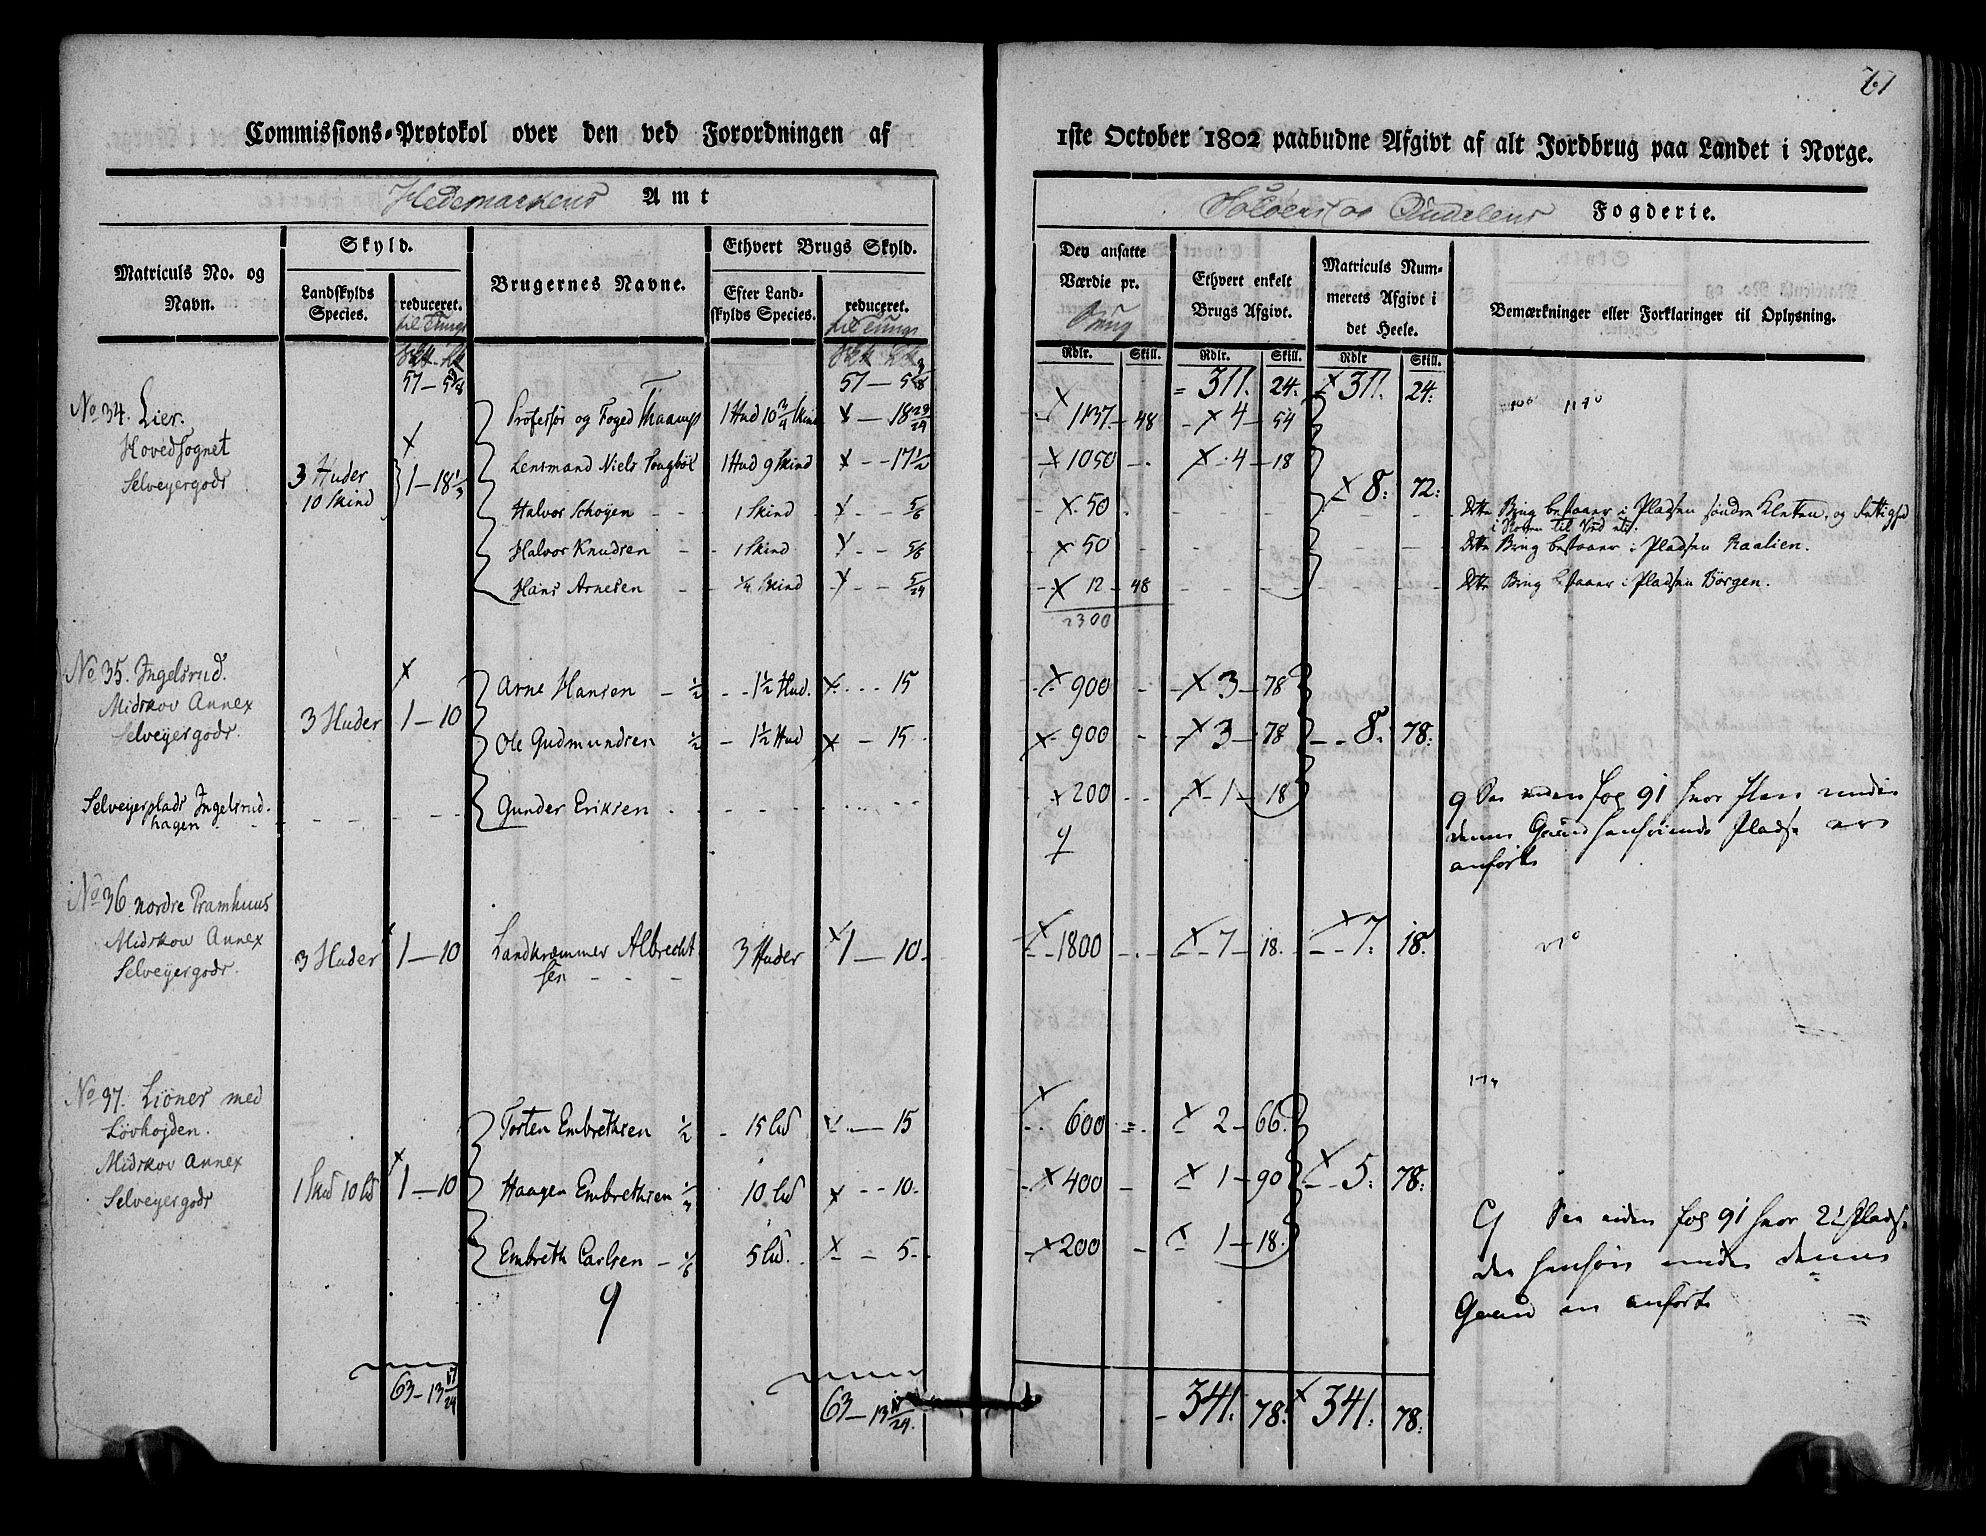 67
Commissions-Protokol over den ved Forordningen af 1ste October 1802 paabudne Afgivt af alt Jordbrug paa Landet i Norge.
Hedemarkens Amt
Soløer og Oudalens Fogderie.
Matriculs No. og Navn.
Skyld.
Landskylds Species.
reduceret.
til Tunge
Brugernes Navne.
Ethvert Brugs Skyld.
Efter Landskylds Species.
reduceret.
til Tunge
Den ansatte Værdie pr.
Brug
Ethvert enkelt Brugs Afgivt.
Matriculs Nummerets Afgivt i det Heele.
Bemærkninger eller Forklaringer til Oplysning.
Rdlr. Skill. Rdlr. Skill. Rdlr Skill.
57 — 5 57 — 5 = 311. 24. x 311. 24:
No 34. Lier. Professor og Foged Thaarup 1 Hud 10 3/4 Skind x — 18 x 1137 — 48 x 4 — 54
Hovedsognet Lensmand Niels 1 Hud 9 Skind x — 17 1/2 x 1050 x 4 — 18
Selveyergods 3 Huder 10 Skind 1 — 18 1/3 x 8: 72:
Halvor Schøyen 1 Skind x 5/6 x 50 Dette Brug bestaaer i Pladsen søndre Kletten, og
i Skoven til Ved etc
Halvor Knudsen 1 Skind x 5/6 x 50 Dette Brug bestaaer i Pladsen Raalien.
Hans Arnesen 1/4 Skind x 5/24 x 12 — 48 Dette Brug bestaaer i Pladsen Børgen.
2300
No 35. Ingelsrud. Arne Hansen 1/2 1 1/2 Hud. x 15 900 x 3 — 78
Midskov Annex 3 Huder 1 — 10
Selveyergods. Ole Gudmundsen 1/2 1 1/2 Hud x 15 x 900 x 3 — 78 8. 78:
Selveyerplads Ingelsrudhagen Gunder Eriksen x 200 x 1 — 18
9 See fol 91 hvor
denne Gaard henhørende Pladse
anførte
No 36 nordre Pramhuus
Midskov Annex 3 Huder 1 — 10 Landkræmmer Albrechtsen 3 Huder x 1 — 10 x 1800 x 7 — 18. x 7: 18.
Selveyergods.
No 37. Liøner med Torsten Embrethsen 1/2 15 Lid x 15 600 x 2 — 66.
Løvhøjden.
Midskov Annex 10 Lid 1 — 10 Haagen Embrethsen 1/3 10 Lid x 10. x 400 x 1 — 90 x 5: 78:
Selveyergods
Embreth Carlsen 1/6 5 Lid. x 5 x 200 x 1 — 18.
9
9 See fol 91 hvor
der henhøre under denne
Gaard er anførte
63 — 13 17/24 63 — 13 17/24 341. 78. x 341. 78: